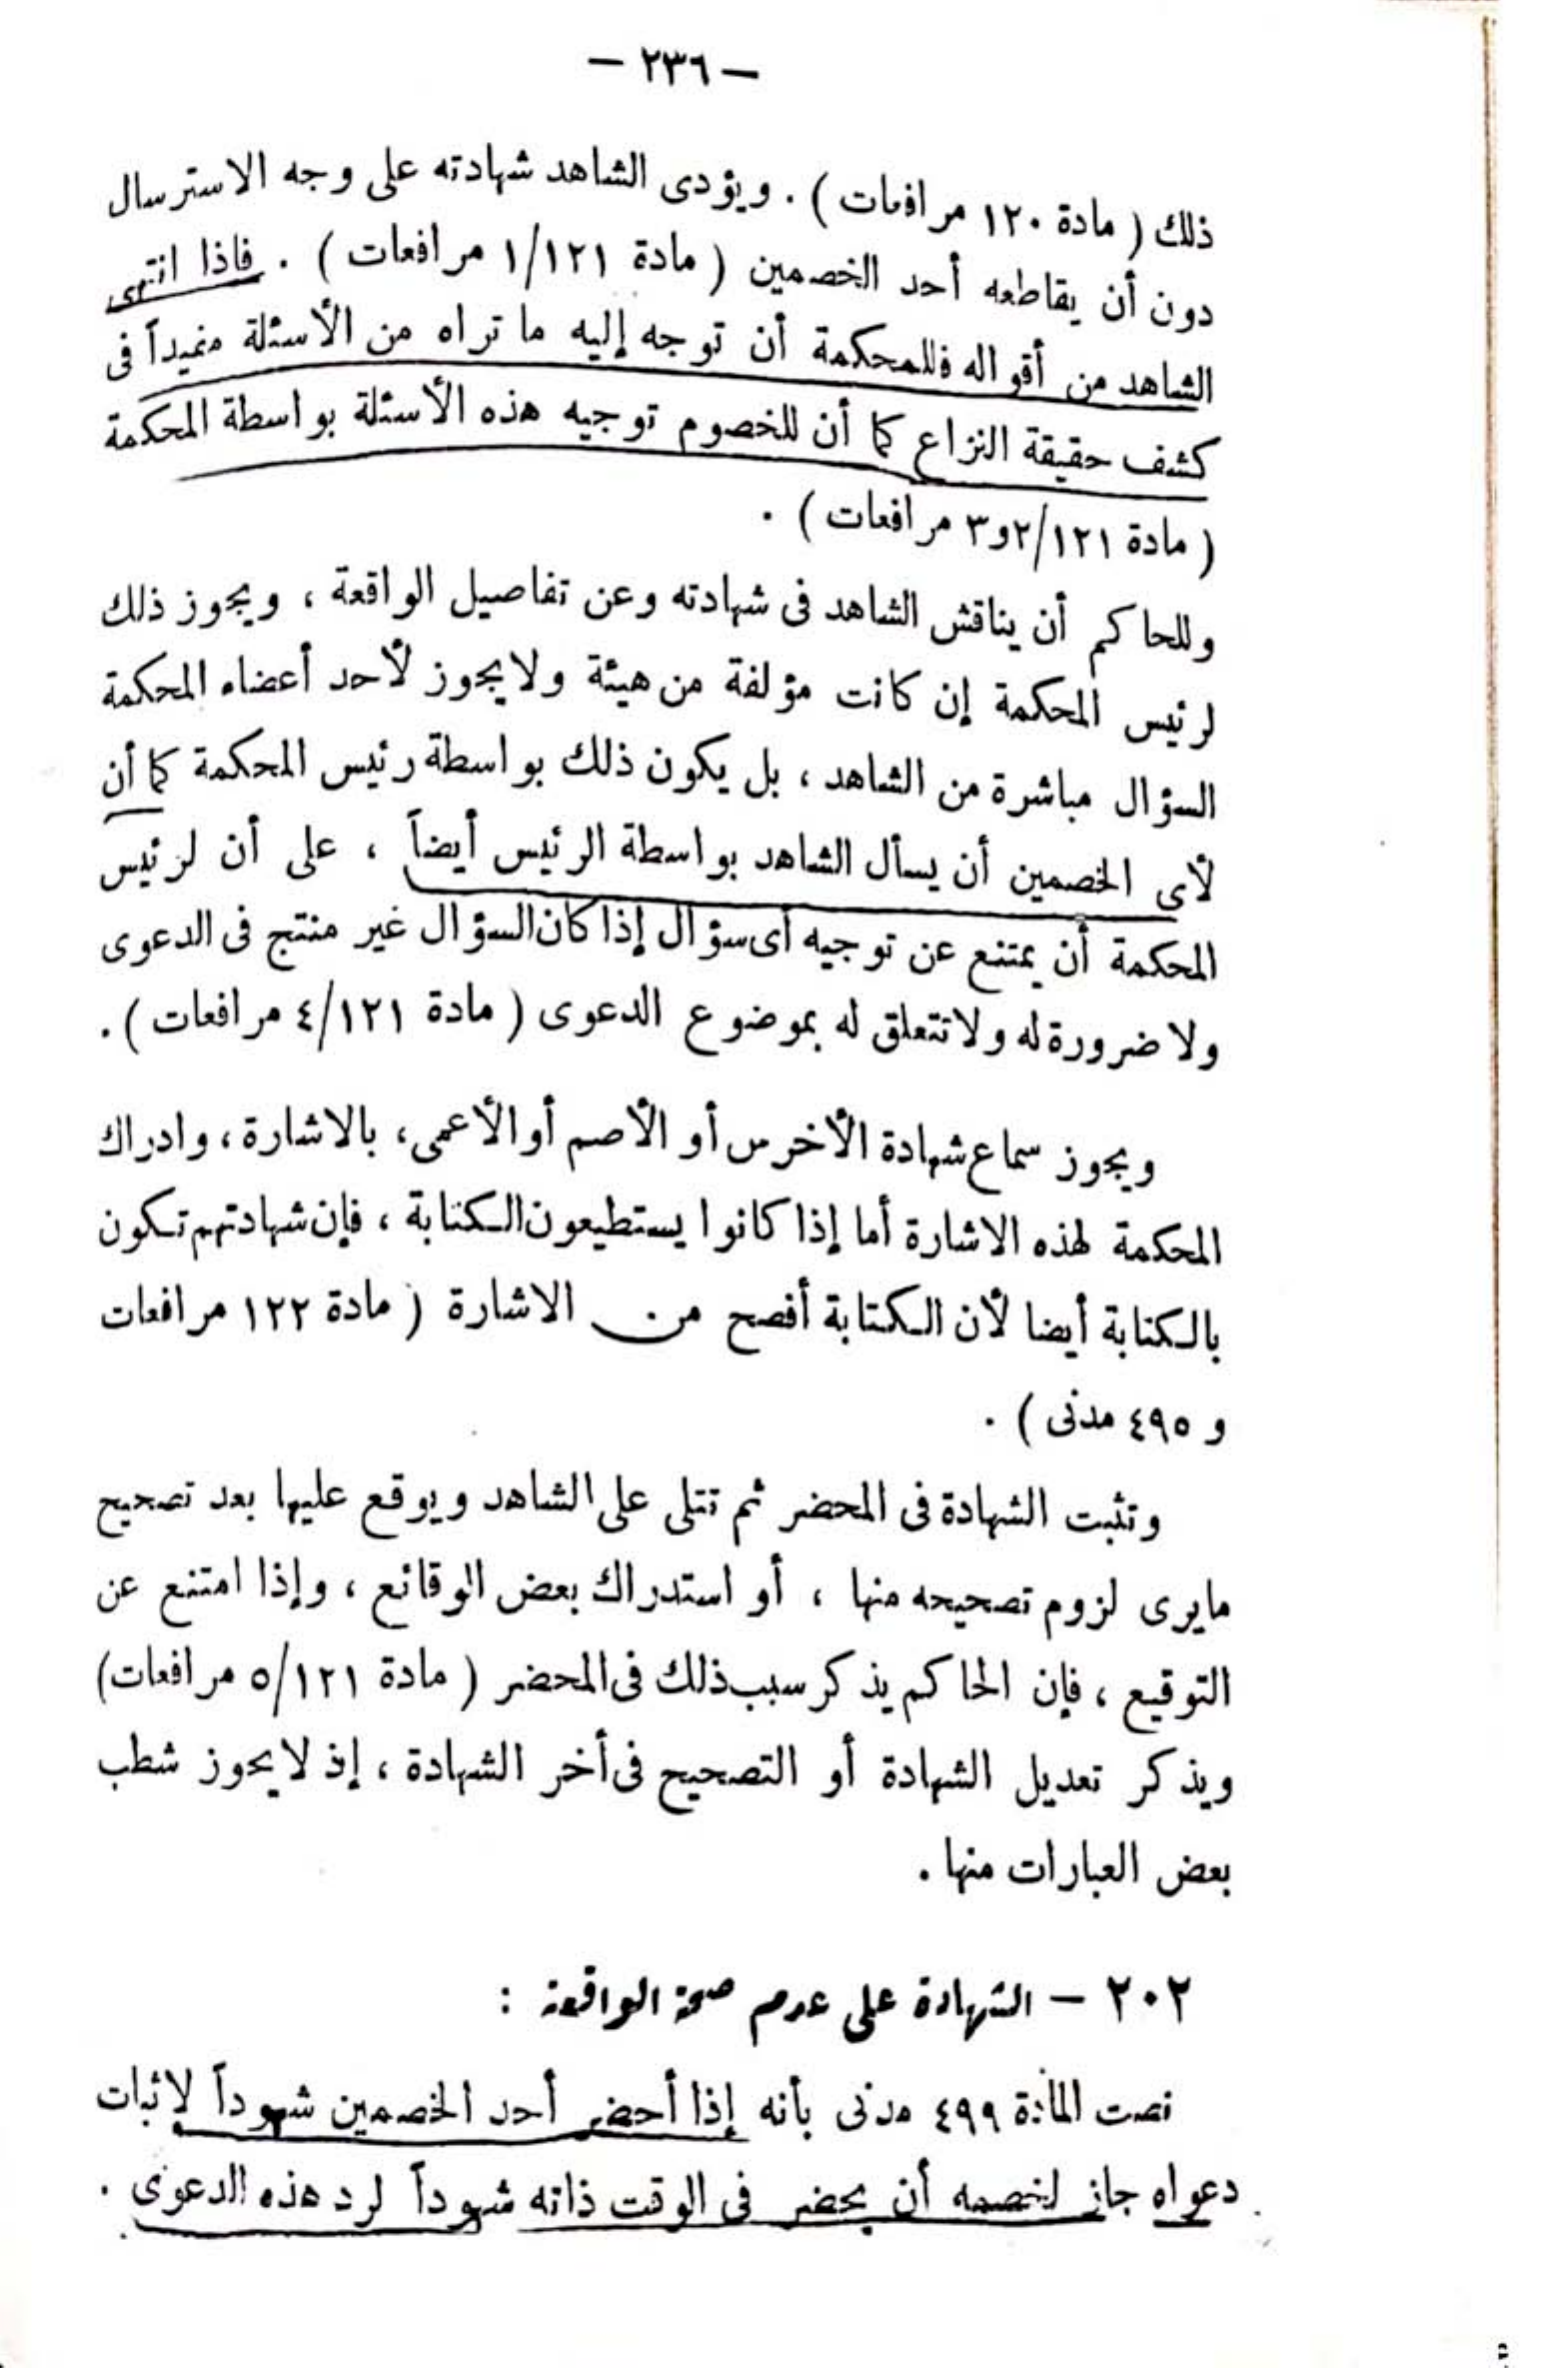 — ٢٣٦ —
ذلك ( مادة ١٢٠ مرافعات ) . ويؤدى الشاهد شهادته على وجه الاسترسال
دون أن يقاطعه أحد الخصمين ( مادة ١/١٢١ مرافعات ) . فاذا انتهى
الشاهد من أقواله فللمحكمة أن توجه إليه ما تراه من الأسئلة مفيداً فى
كشف حقيقة النزاع كما أن للخصوم توجيه هذه الأسئلة بواسطة المحكمة
( مادة ٢/١٢١و٣ مرافعات ) .
وللحاكم أن يناقش الشاهد فى شهادته وعن تفاصيل الواقعة ، ويجوز ذلك
لرئيس المحكمة إن كانت مؤلفة من هيئة ولا يجوز لأحد أعضاء المحكمة
السؤال مباشرة من الشاهد ، بل يكون ذلك بواسطة رئيس المحكمة كما أن
لأى الخصمين أن يسأل الشاهد بواسطة الرئيس أيضاً ، على أن لرئيس
المحكمة أن يمتنع عن توجيه أى سؤال إذا كان السؤال غير منتج فى الدعوى
ولا ضرورة له ولا تتعلق له بموضوع الدعوى ( مادة ٤/١٢١ مرافعات ) .
ويجوز سماع شهادة الأخرس أو الأصم أو الأعمى ، بالاشارة ، وادراك
المحكمة لهذه الاشارة أما إذا كانوا يستطيعون الكتابة ، فإن شهادتهم تكون
بالكتابة أيضا لأن الكتابة أفصح من الاشارة ( مادة ١٢٢ مرافعات
و ٤٩٥ مدنى ) .
وتثبت الشهادة فى المحضر ثم تتلى على الشاهد ويوقع عليها بعد تصحيح
مايرى لزوم تصحيحه منها ، أو استدراك بعض الوقائع ، وإذا امتنع عن
التوقيع ، فإن الحاكم يذكر سبب ذلك فى المحضر ( مادة ٥/١٢١ مرافعات)
ويذكر تعديل الشهادة أو التصحيح فى أخر الشهادة ، إذ لا يجوز شطب
بعض العبارات منها .
٢٠٢ — الشهادة على عدم صحة الواقعة :
نصت المادة ٤٩٩ مدنى بأنه إذا أحضر أحد الخصمين شهوداً لاثبات
دعواه جاز لخصمه أن يحضر فى الوقت ذاته شهوداً لرد هذه الدعوى .